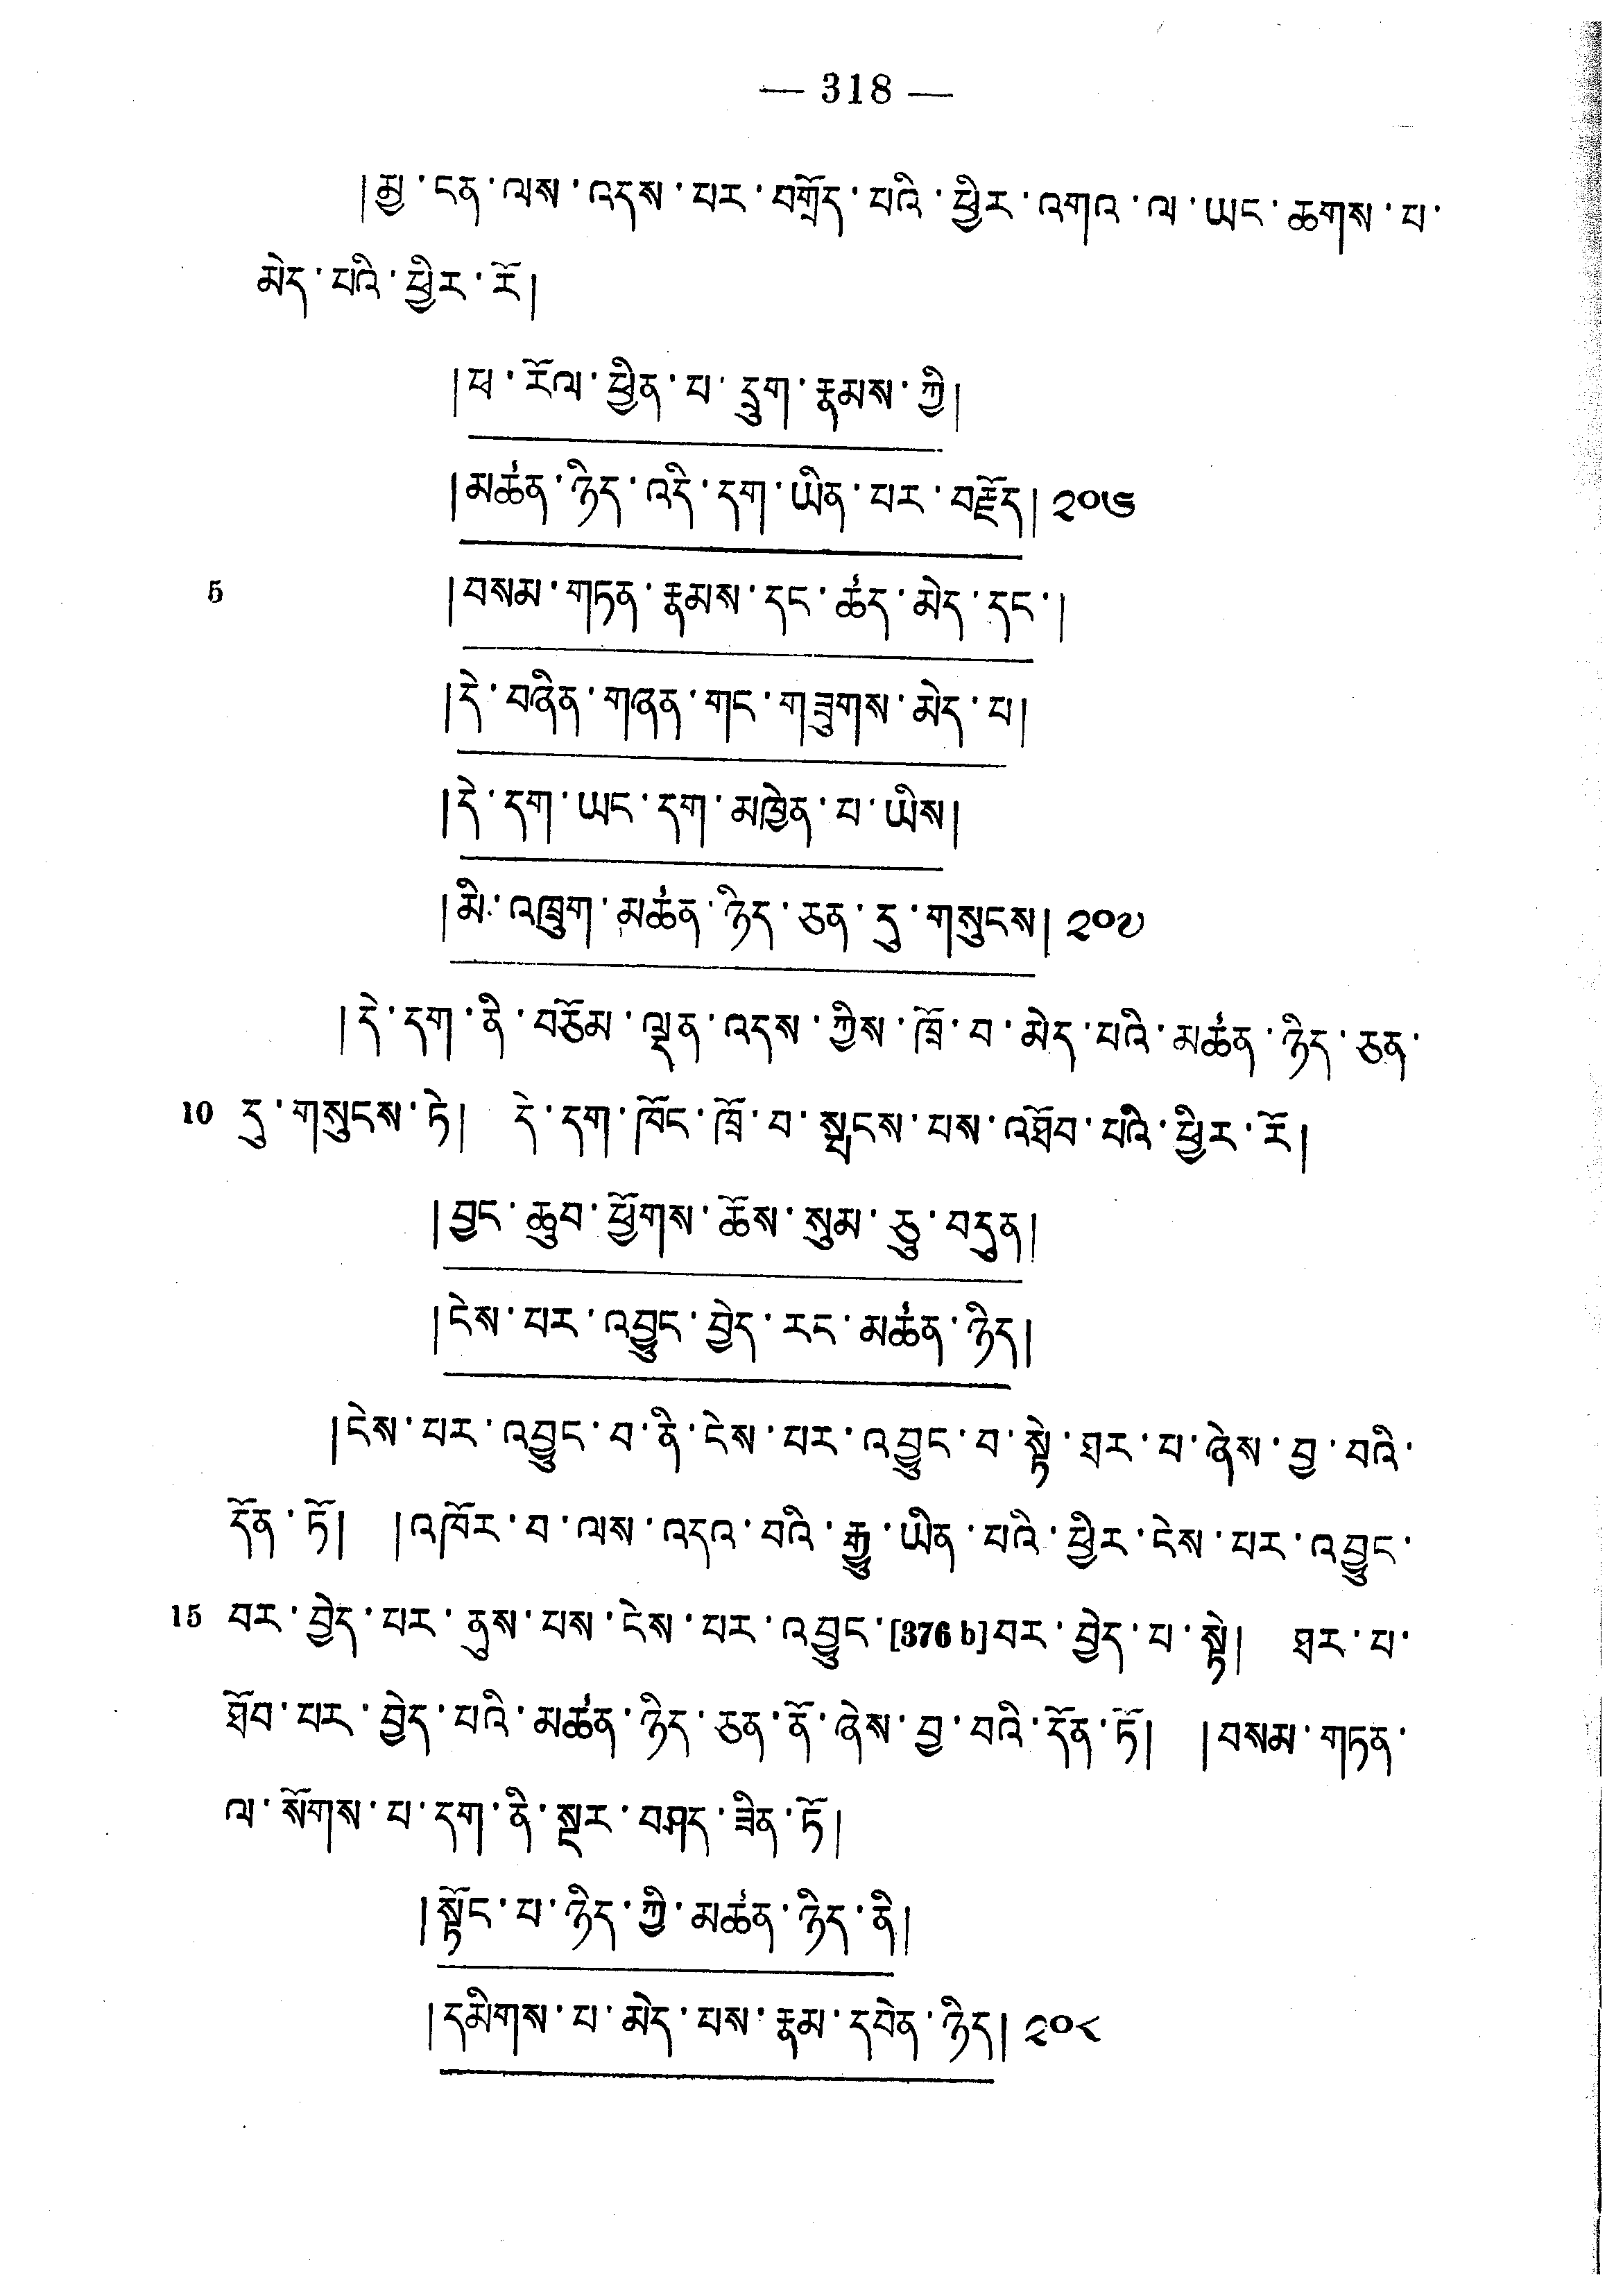 — 318 —
།མྱ་ངན་ལས་འདས་པར་བགྲོད་པའི་ཕྱིར་འགའ་ལ་ཡང་ཆགས་པ་
མེད་པའི་ཕྱིར་རོ།
།ཕ་རོལ་ཕྱིན་པ་དྲུག་རྣམས་ཀྱི།
།མཚན་ཉིད་འདི་དག་ཡིན་པར་བརྗོད། ༢༠༦
5 །བསམ་གཏན་རྣམས་དང་ཚད་མེད་དང་།
།དེ་བཞིན་གཞན་གང་གཟུགས་མེད་པ།
།དེ་དག་ཡང་དག་མཁྱེན་པ་ཡིས།
།མི་འཁྲུག་མཚན་ཉིད་ཅན་དུ་གསུངས། ༢༠༧
།དེ་དག་ནི་བཅོམ་ལྡན་འདས་ཀྱིས་ཁྲོ་བ་མེད་པའི་མཚན་ཉིད་ཅན་
10 དུ་གསུངས་ཏེ། དེ་དག་ཁོང་ཁྲོ་བ་སྤངས་པས་འཐོབ་པའི་ཕྱིར་རོ།
།བྱང་ཆུབ་ཕྱོགས་ཆོས་སུམ་ཅུ་བདུན།
།ངེས་པར་འབྱུང་བྱེད་རང་མཚན་ཉིད།
།ངེས་པར་འབྱུང་བ་ནི་ངེས་པར་འབྱུང་བ་སྟེ་ཐར་པ་ཞེས་བྱ་བའི་
དོན་ཏོ། །འཁོར་བ་ལས་འདའ་བའི་རྒྱུ་ཡིན་པའི་ཕྱིར་ངེས་པར་འབྱུང་
15 བར་བྱེད་པར་ནུས་པས་ངེས་པར་འབྱུང་[376 b]བར་བྱེད་པ་སྟེ། ཐར་པ་
ཐོབ་པར་བྱེད་པའི་མཚན་ཉིད་ཅན་ནོ་ཞེས་བྱ་བའི་དོན་ཏོ། །བསམ་གཏན་
ལ་སོགས་པ་དག་ནི་སྔར་བཤད་ཟིན་ཏོ།
།སྟོང་པ་ཉིད་ཀྱི་མཚན་ཉིད་ནི།
།དམིགས་པ་མེད་པས་རྣམ་དབེན་ཉིད། ༢༠༨